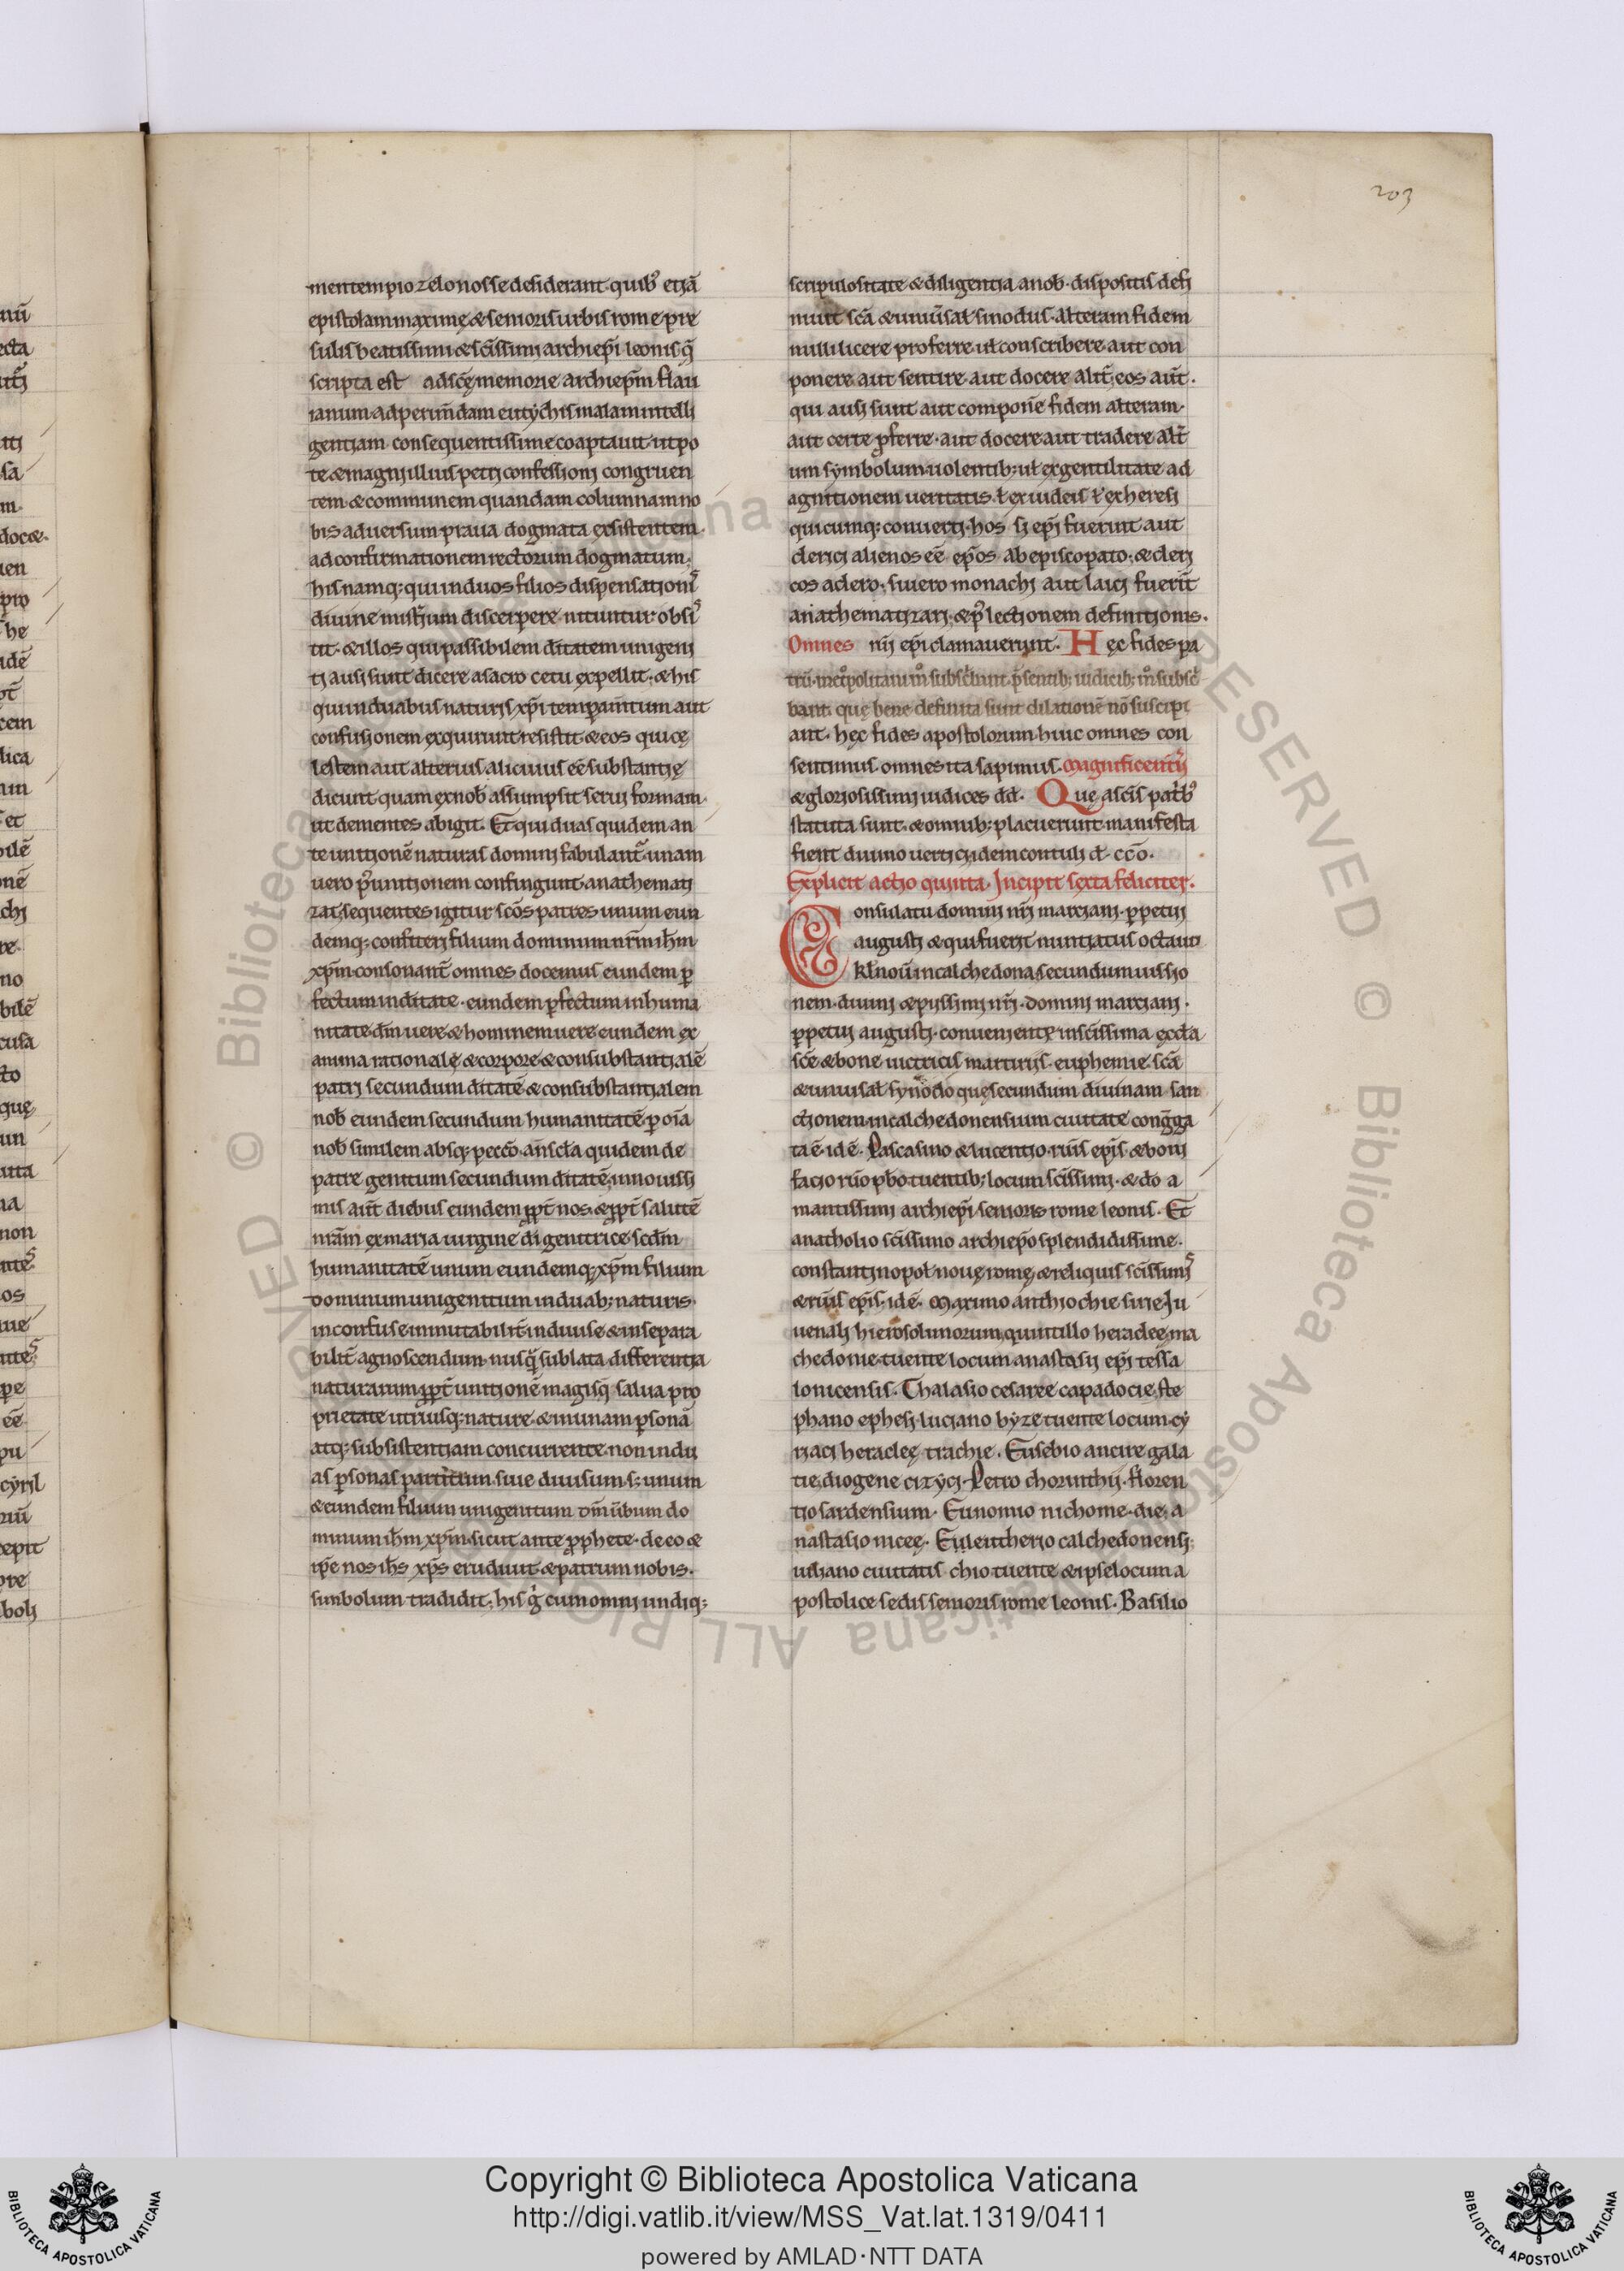 203
mentem pio zelo nosse desiderant quib᾽ etiā
epistolam maxime & senioris urbis rome pre
sulis beatissimi & sc̄issimi archiep̄i leonis q̄
scripta est ad scę memorie archiep̄m flaui
ianum ad perim̄dam eutychis malam intelli
gentiam consequentissime coaptauit utpo
te & magni illius petri confessioni congruen
tem & communem quandam columnam no
bis aduersum praua dogmata exsistentem.
ad confirmationem rectorum dogmatum.
his namq; qui in duos filios dispensationis
diuine mist̄ium discerpere nituntur obsi
tit. & illos qui passibilem d̄itatem unigeni
ti ausi sunt dicere a sacro cetu expellit. & his
qui in duabus naturis xp̄i temparn̄tum aut
confusionem exquirunt resistit & eos qui cę
lestem aut alterius alicuius ēe substantię
dicunt quam ex nob̄ assumpsit serui formam.
ut dementes abigit. Et qui duas quidem an
te unitionē naturas domini fabulant᾽ unam
uero p᾽ unitionem confingunt anathemati
zat. sequentes igitur sc̄os patres unum eun
demq; confiteri filium dominum nr̄m ih̄m
xp̄m consonant̄ omnes docemus eundem p̄
fectum in d̄itate. eundem p̄fectum in huma
nitate dm̄ uere & hominem uere eundem ex
anima rationale & corpore & consubstantialē
patri secundum d̄itatē & consubstantialem
nob̄ eundem secundum humanitatē p̄ oīa
nob̄ similem absq; pecc̄o. an̄ sc̄la quidem de
patre genitum secundum d̄itatē. in nouissi
mis aut̄ diebus eundem ppt̄ nos & ppt̄ salutē
nr̄am ex maria uirgine di genitrice scdm̄
humanitatē unum eundemq; xp̄m filium
dominum unigenitum in duab; naturis.
inconfuse inmutabilit̄ indiuise & insepara
bilit̄ agnoscendum. nusq̄ sublata differentia
naturarum ppt̄ unitionē magisq; salua pro
prietate utriusq; nature & in unam p̄sonā
atq; subsistentiam concurrente. non in du
as p̄sonas partitum siue diuisum. s; unum
& eundem filium unigenitum dm̄ ūbum do
minum ih̄m xp̄m. sicut ante pphete. de eo &
ip̄e nos ih̄s xp̄s erudiuit & patrum nobis.
simbolum tradidit. his ḡ cum omni undiq;
scripulositate & diligentia a nob̄. dispositis defi
niuit sc̄a & uniūsal̄ sinodus. alteram fidem
nulli licere proferre ul̄ conscribere aut con
ponere aut sentire aut docere alit̄. eos aūt.
qui ausi sunt aut componē fidem alteram.
aut certe p̄ferre. aut docere aut tradere alt̄
um symbolum uolentib; ul̄ ex gentilitate ad
agnitionem ueritatis. ł ex iudeis ł ex heresi
quicumq; conuerti. hos si ep̄i fuerint aut
clerici alienos eē ep̄os ab episcopato. & cleri
cos a clero. si uero monachi aut laici fuerīt
anathematizari. & p᾽ lectionem definitionis.
Omnes nr̄i ep̄i clamauerunt. Hęc fides pa
trū. met̄politani m᾽ subscribant. p̄sentib; iudicib; m᾽ subscri
bant. quę bene definita sunt dilationē nō suscipi
ant. hęc fides apostolorum. huic omnes con
sentimus. omnes ita sapimus. Magnificentis̄
& gloriosissimi iudices dd̄. Quę a sc̄is patrib᾽
statuta sunt. & omnib; placuerunt manifesta
fient diuino uertici. idem contuli d̄ cc̄o.
Explicit actio quinta. Incipit sexta feliciter.
Consulatu domini nr̄i marciani. p̄petui
augusti & qui fuerit nuntiatus octauo
kl̄ nou̅ in calchedona. secundum iussio
nem. diuini & piissimi nr̄i. domini marciani.
p̄petui augusti. conueniente in sc̄issima eccl̄a
sc̄e & bone uictricis martiris. euphemie. sc̄a
& uniūsal̄ synodo quę secundum diuinam san
ctionem in calchedonensium ciuitate cong̅ga
ta ē. idē. Pascasino & lucentio. rūis ep̄is. & boni
facio rūo p̄bo tuentib; locum sc̄issimi. & do a
mantissimi archiep̄i senioris rome leonis. Et
anatholio sc̄issimo archiep̄o splendidissime.
constantinopol̄ nouę romę. & reliquis sc̄issimis
& rūis ep̄is. idē. Maximo anthiochie sirie. Iu
uenali hierosolimorum. quintillo heraclee ma
chedonie tuente locum anastasii ep̄i tessa
lonicensis. Thalasio cesaree capadocie. ste
phano ephesi. luciano byze tuente locum cy
riaci heraclee trachie. Eusebio ancire gala
tie. diogene cizyci. Petro chorinthii. floren
tio sardensium. Eunomio nichome. die. a
nastasio nicee. Eulentherio calchedonensi.
uiliano ciuitatis chio tuente & ipse locum a
postolice sedis senioris rome leonis. Basilio
Copyright © Biblioteca Apostolica Vaticana
http://digi.vatlib.it/view/MSS_Vat.lat.1319/0411
powered by AMLAD·NTT DATA